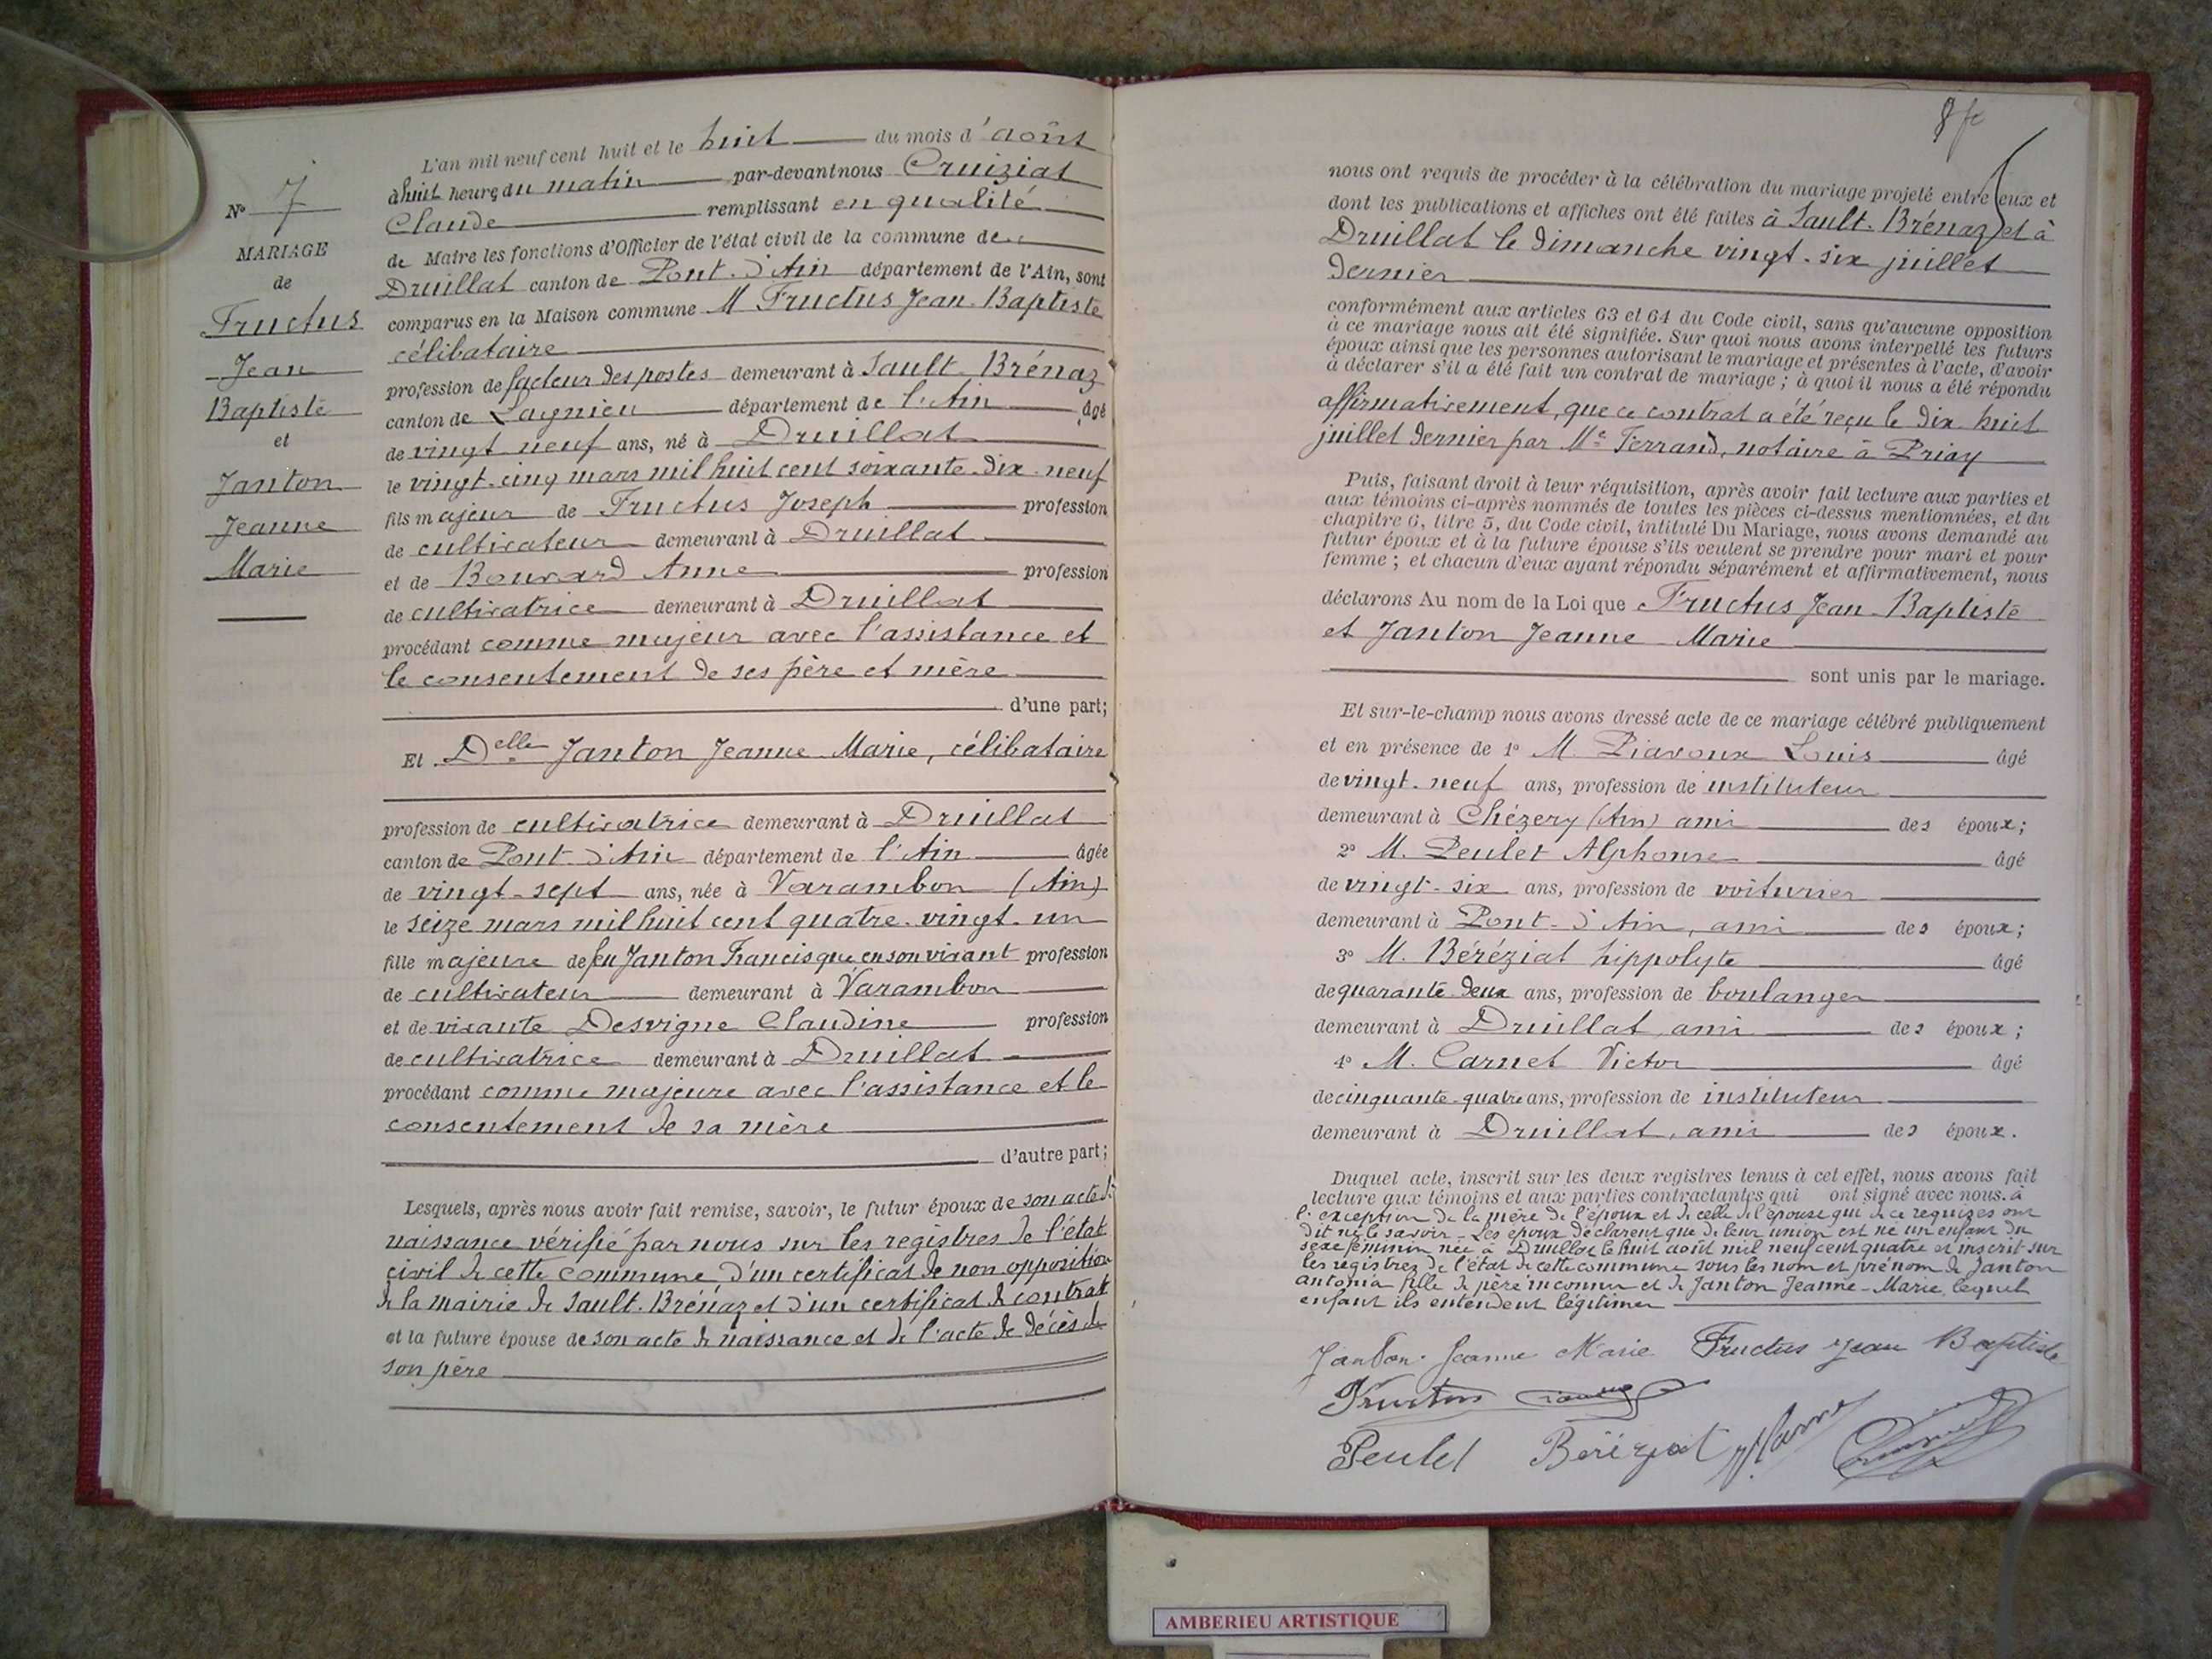 N° 7
MARIAGE
de
Fructus
Jean
Baptiste
et
Janton
Jeanne
Marie
L'an mil neuf cent huit et le huit du mois d'août
à huit heures du matin par-devant nous Cruiziat
Claude remplissant en qualité
de Maire les fonctions d'Officier de l'état civil de la commune de
Druillat canton de Pont-d'Ain département de l'Ain, sont
comparus en la Maison commune M Fructus Jean-Baptiste
célibataire
profession de facteur des postes demeurant à Sault-Brénaz
canton de Lagnieu département de l'Ain âgé
de vingt-neuf ans, né à Druillat
le vingt-cinq mars mil huit cent soixante-dix-neuf
fils majeur de Fructus Joseph profession
de cultivateur demeurant à Druillat
et de Bouvard Anne profession
de cultivatrice demeurant à Druillat
procédant comme majeur avec l'assistance et
le consentement de ses père et mère
d'une part;
Et Delle Janton Jeanne-Marie, célibataire
profession de cultivatrice demeurant à Druillat
canton de Pont-d'Ain département de l'Ain âgée
de vingt-sept ans, née à Varambon (Ain)
le seize mars mil huit cent quatre-vingt-un
fille majeure de feu Janton Francisque en son vivant profession
de cultivateur demeurant à Varambon
et de vivante Desvigne Claudine profession
de cultivatrice demeurant à Druillat
procédant comme majeure avec l'assistance et le
consentement de sa mère
d'autre part;
Lesquels, après nous avoir fait remise, savoir, le futur époux de son acte de
naissance vérifié par nous sur les registres de l'état
civil de cette commune, d'un certificat de non opposition
de la mairie de Sault-Brénaz et d'un certificat de contrat
et la future épouse de son acte de naissance et de l'acte de décès de
son père
nous ont requis de procéder à la célébration du mariage projeté entre eux et
dont les publications et affiches ont été faites à Sault-Brénaz et à
Druillat le dimanche vingt-six juillet
dernier
conformément aux articles 63 et 64 du Code civil, sans qu'aucune opposition
à ce mariage nous ait été signifiée. Sur quoi nous avons interpellé les futurs
époux ainsi que les personnes autorisant le mariage et présentes à l'acte, d'avoir
à déclarer s'il a été fait un contrat de mariage; à quoi il nous a été répondu
affirmativement, que ce contrat a été reçu le dix-huit
juillet dernier par Me Ferrand, notaire à Priay
Puis, faisant droit à leur réquisition, après avoir fait lecture aux parties et
aux témoins ci-après nommés de toutes les pièces ci-dessus mentionnées, et du
chapitre 6, titre 5, du Code civil, intitulé Du Mariage, nous avons demandé au
futur époux et à la future épouse s'ils veulent se prendre pour mari et pour
femme; et chacun d'eux ayant répondu séparément et affirmativement, nous
déclarons Au nom de la Loi que Fructus Jean-Baptiste
et Janton Jeanne-Marie
sont unis par le mariage.
Et sur-le-champ nous avons dressé acte de ce mariage célébré publiquement
et en présence de 1° M. Piavoux Louis âgé
de vingt-neuf ans, profession de instituteur
demeurant à Chézery (Ain) ami des époux;
2° M. Peulet Alphonse âgé
de vingt-six ans, profession de voiturier
demeurant à Pont-d'Ain, ami des époux;
3° M. Béréziat hippolyte âgé
de quarante-deux ans, profession de boulanger
demeurant à Druillat, ami des époux;
4° M. Carnet Victor âgé
de cinquante-quatre ans, profession de instituteur
demeurant à Druillat, ami des époux.
Duquel acte, inscrit sur les deux registres tenus à cet effet, nous avons fait
lecture aux témoins et aux parties contractantes qui ont signé avec nous. à
l'exception de la mère de l'époux et de celle de l'épouse qui de ce requises ont
dit ne le savoir - Les époux déclarent que de leur union est né un enfant du
sexe féminin née à Druillat le huit août mil neuf cent quatre et inscrit sur
les registres de l'état de cette commune sous les nom et prénom de Janton
antonia fille de père inconnu et de Janton Jeanne-Marie, lequel
enfant ils entendent légitimer
Janton Jeanne Marie Fructus Jean Baptiste
Fructus
Peulet Béréziat
AMBERIEU ARTISTIQUE